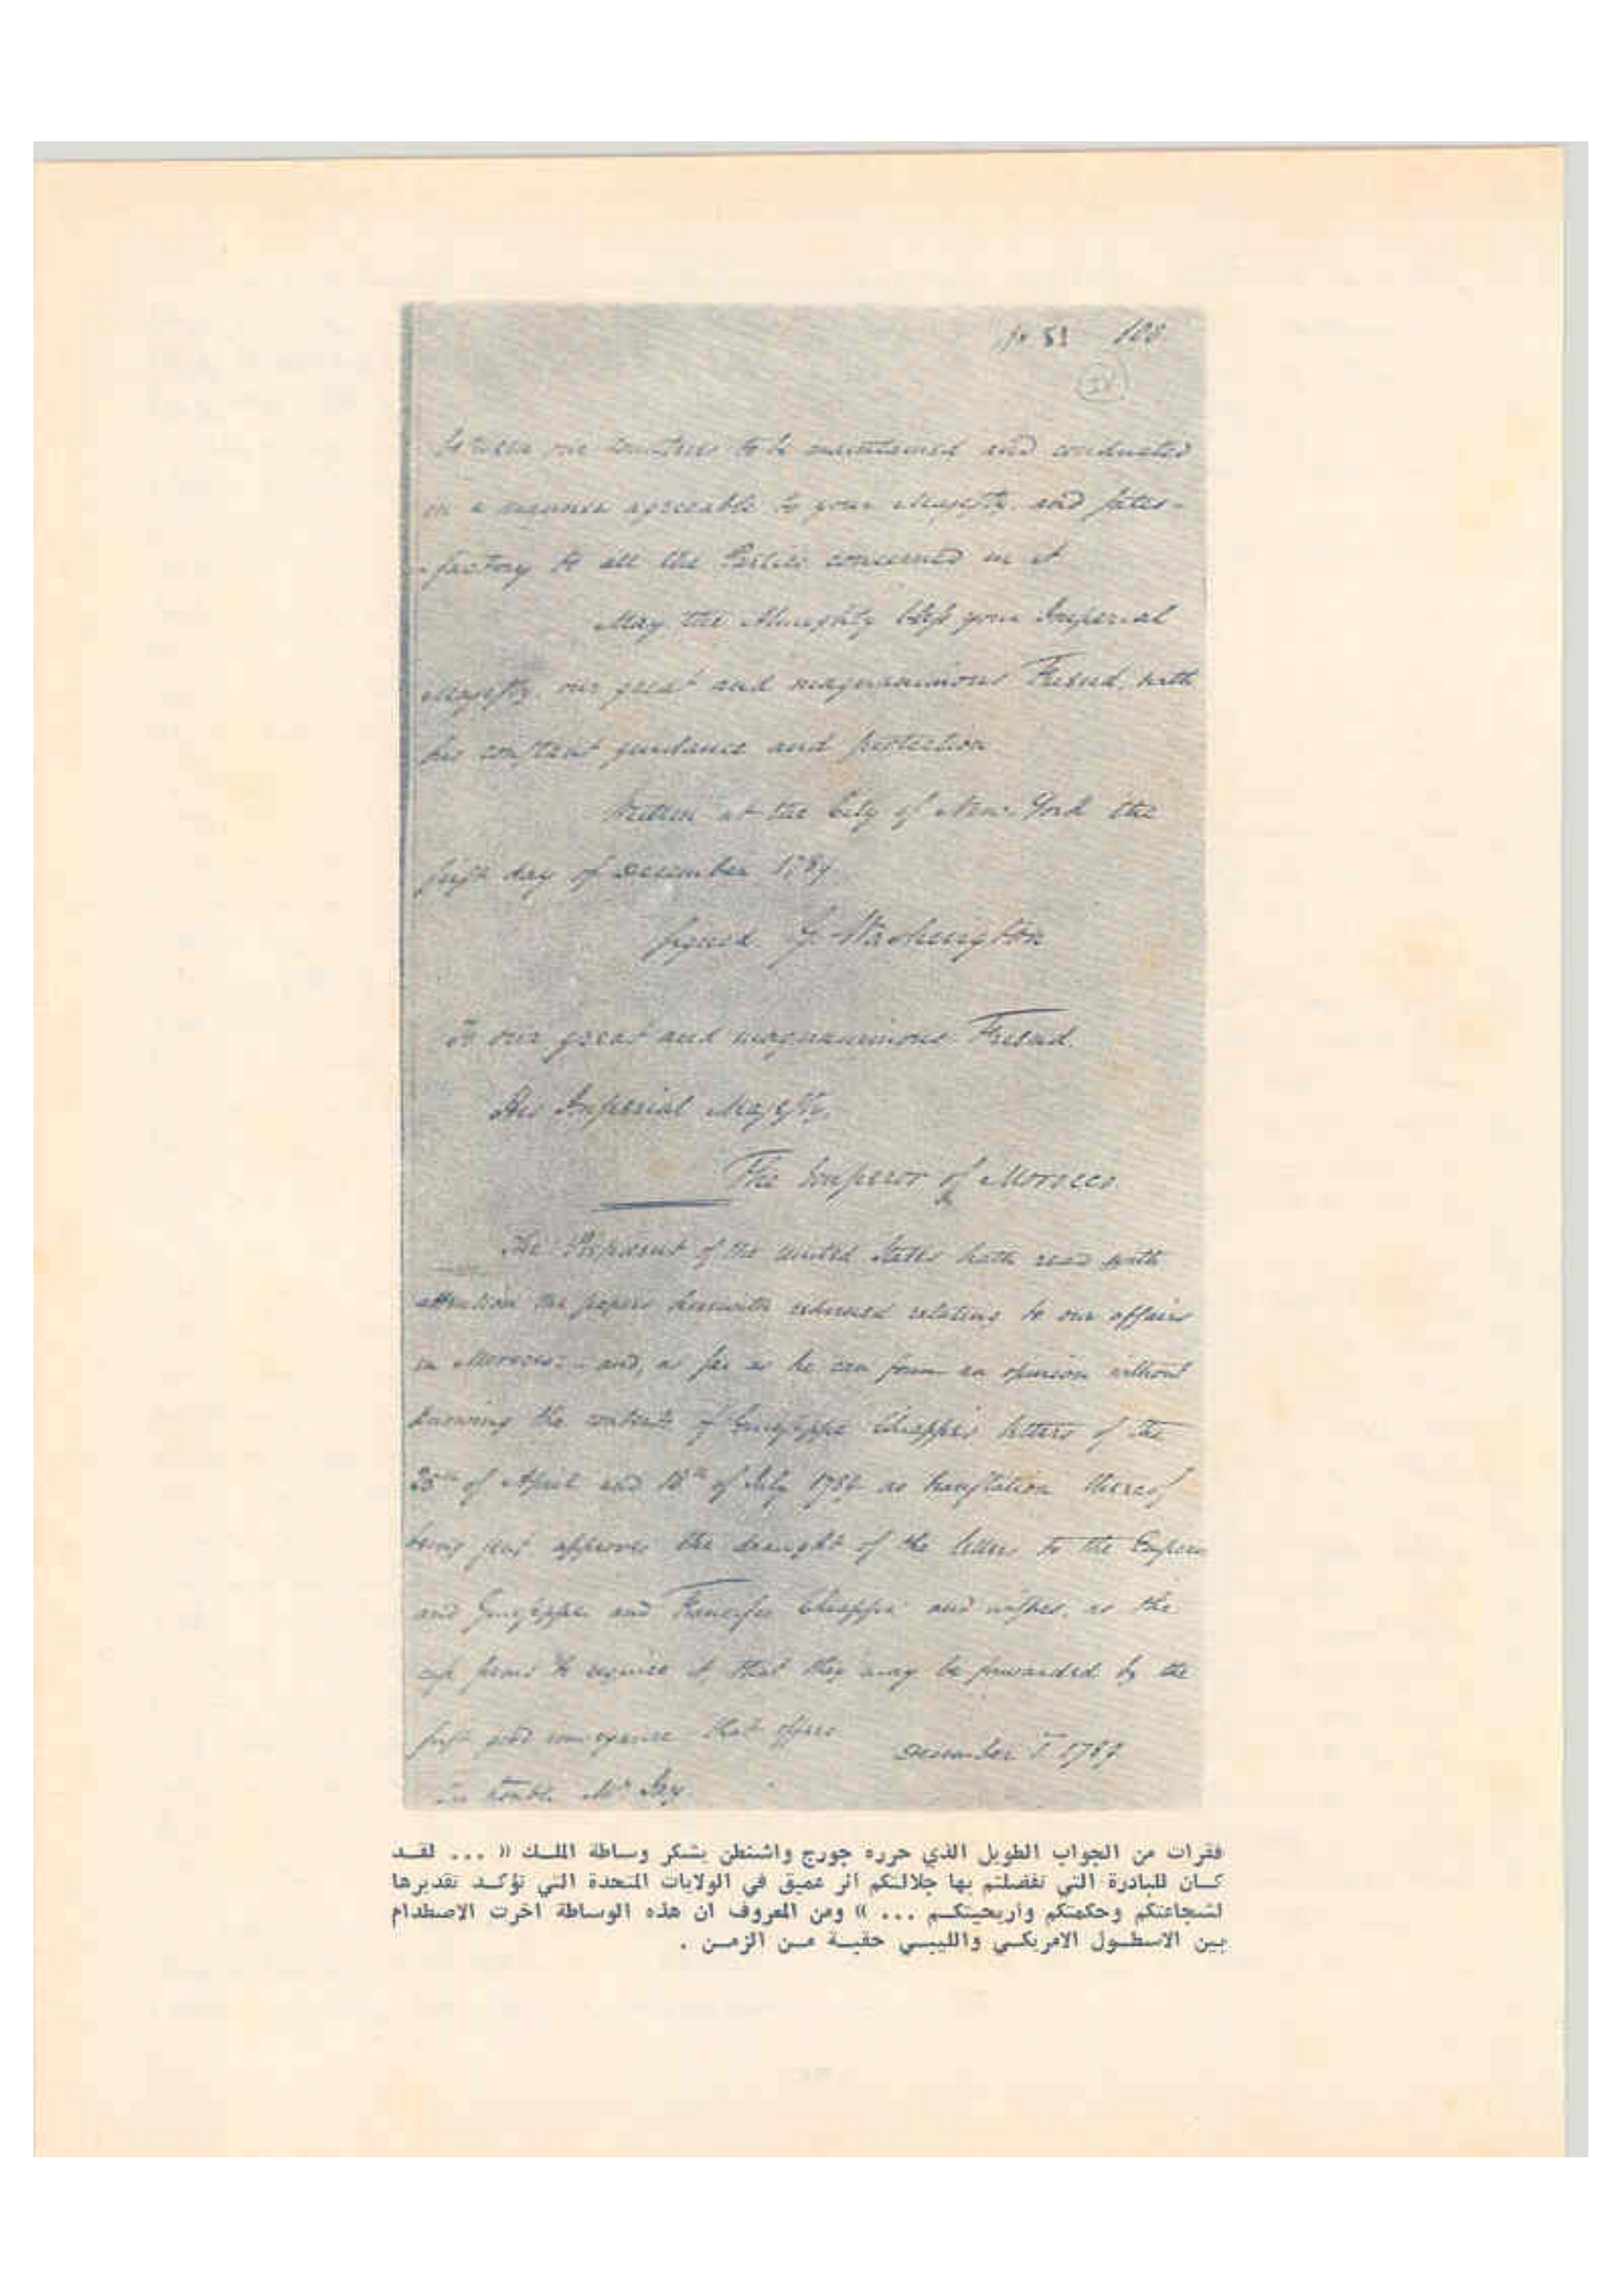 51 128
between our Countries to be maintained and conducted
in a manner agreeable to your Majesty, and satis-
-factory to all the Parties concerned in it
May the Almighty bless your Imperial
Majesty, our great and magnanimous Friend, with
his constant guidance and protection
Written at the City of New York the
first day of December 1789.
Signed G. Washington
To our great and magnanimous Friend.
His Imperial Majesty,
The Emperor of Morocco.
The President of the United States hath read with
attention the papers herewith returned relating to our affairs
in Morocco: - and, as far as he can form an opinion without
knowing the contents of Guiseppe Chiappi's letters of the
of April and 18th of July no translation thereof
being sent approves the draught of the letters to the Emperor
and Guiseppe and Francisco Chiappi and wishes, as the
case seems to require it, that they may be forwarded by the
first good conveyance that offers
December 1st 1789
Mr Jay.
فقرات من الجواب الطويل الذي حرره جورج واشنطن يشكر وساطة الملك « ... لقد
كان للبادرة التي تفضلتم بها جلالتكم أثر عميق في الولايات المتحدة التي تؤكد تقديرها
لشجاعتكم وحكمتكم واريحيتكم ... » ومن المعروف ان هذه الوساطة اخرت الاصطدام
بين الاسطول الامريكي والليبي حقبة من الزمن .